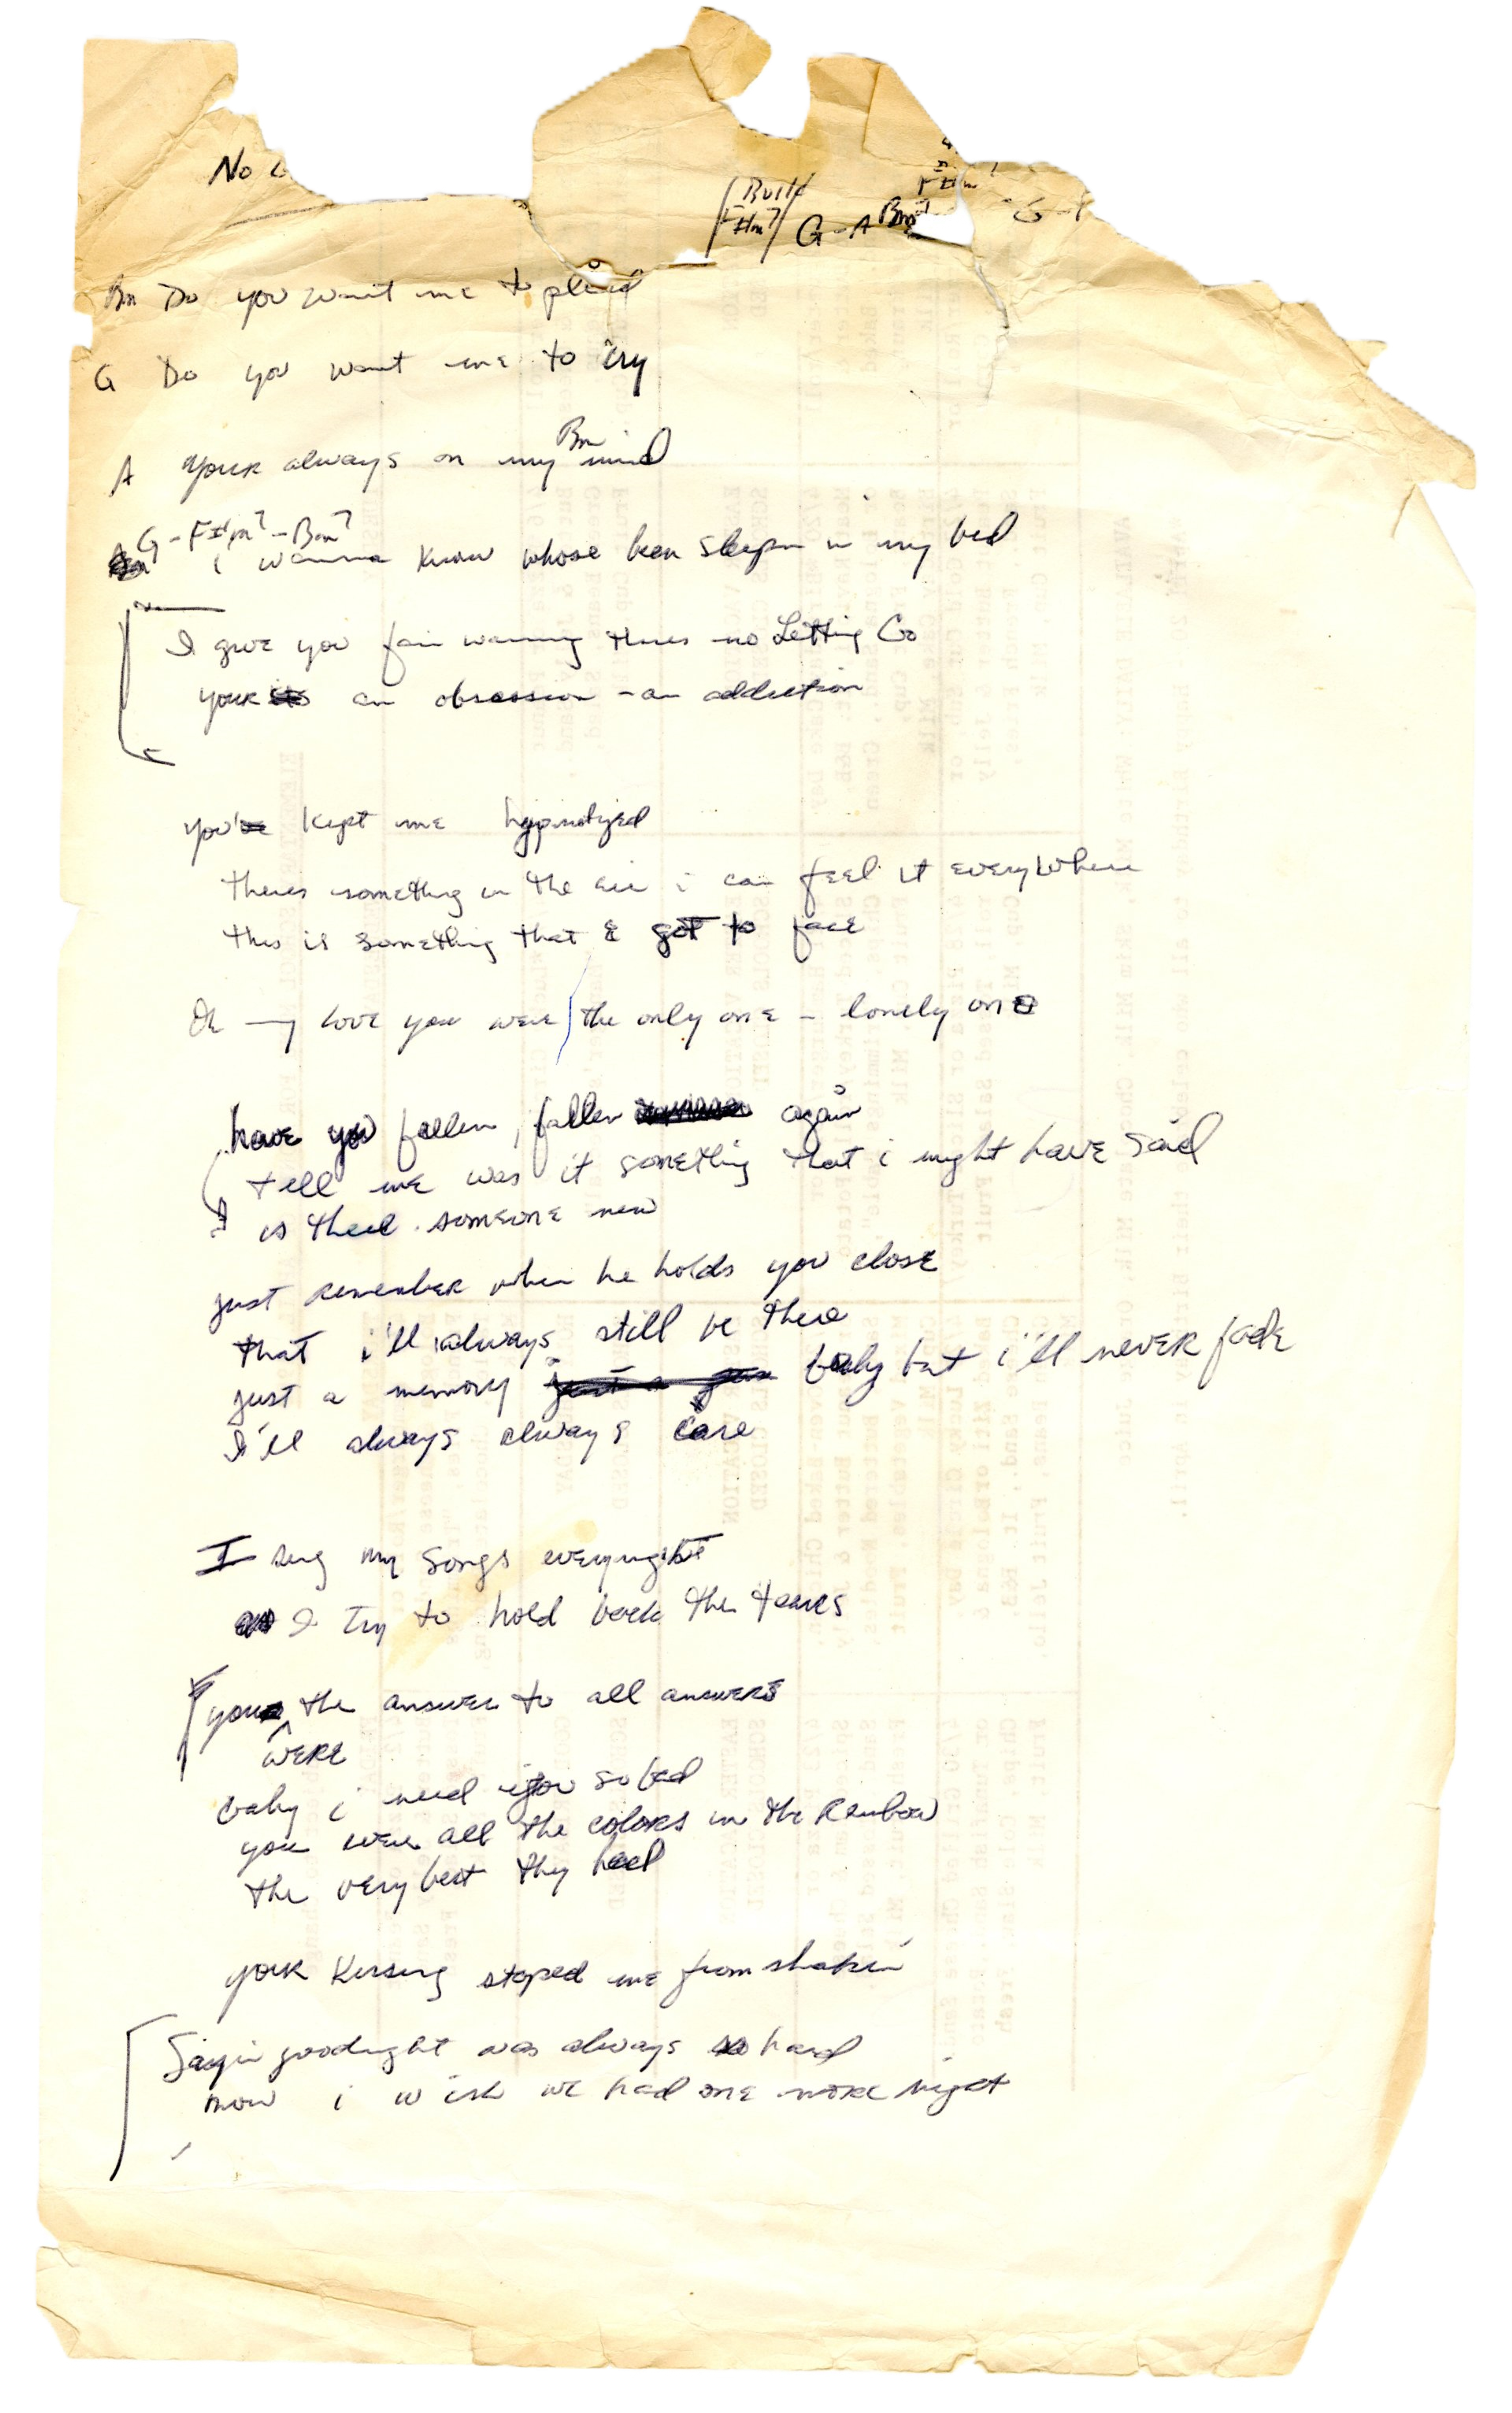 No
Build
F#m7 G - A Bm7
Bm Do you want me to plead
G Do you want me to cry
Bm
A your always on my mind
G - F#m7 - Bm7
i wanna know whose been sleepin in my bed
I give you fair warning theres no Letting Go
your an obsession - an addiction
you've kept me hypnotized
theres something in the air i can feel it everywhere
this is something that I got to face
Oh my love you were the only one - lonely one
have you fallen, fallen again
tell me was it something that i might have said
is there someone new
just remember when he holds you close
that i'll always still be there
just a memory baby but i'll never fade
I'll always always care
I sing my songs everynight
as I try to hold back the tears
you the answer to all answers
were
baby i need you so bad
you were all the colors in the Rainbow
the very best they had
your kissing stoped me from shakin
Sayin goodnight was always so hard
now i wish we had one more night